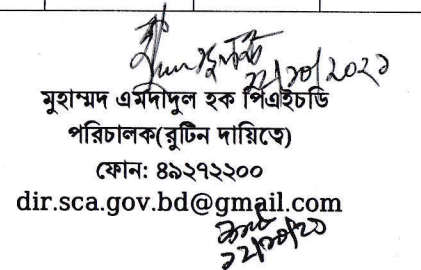 ২২/১০/২০২১
মুহাম্মদ এমদাদুল হক পিএইচডি
পরিচালক(রুটিন দায়িত্বে)
ফোন: ৪৯২৭২২০০
dir.sca.gov.bd@gmail.com